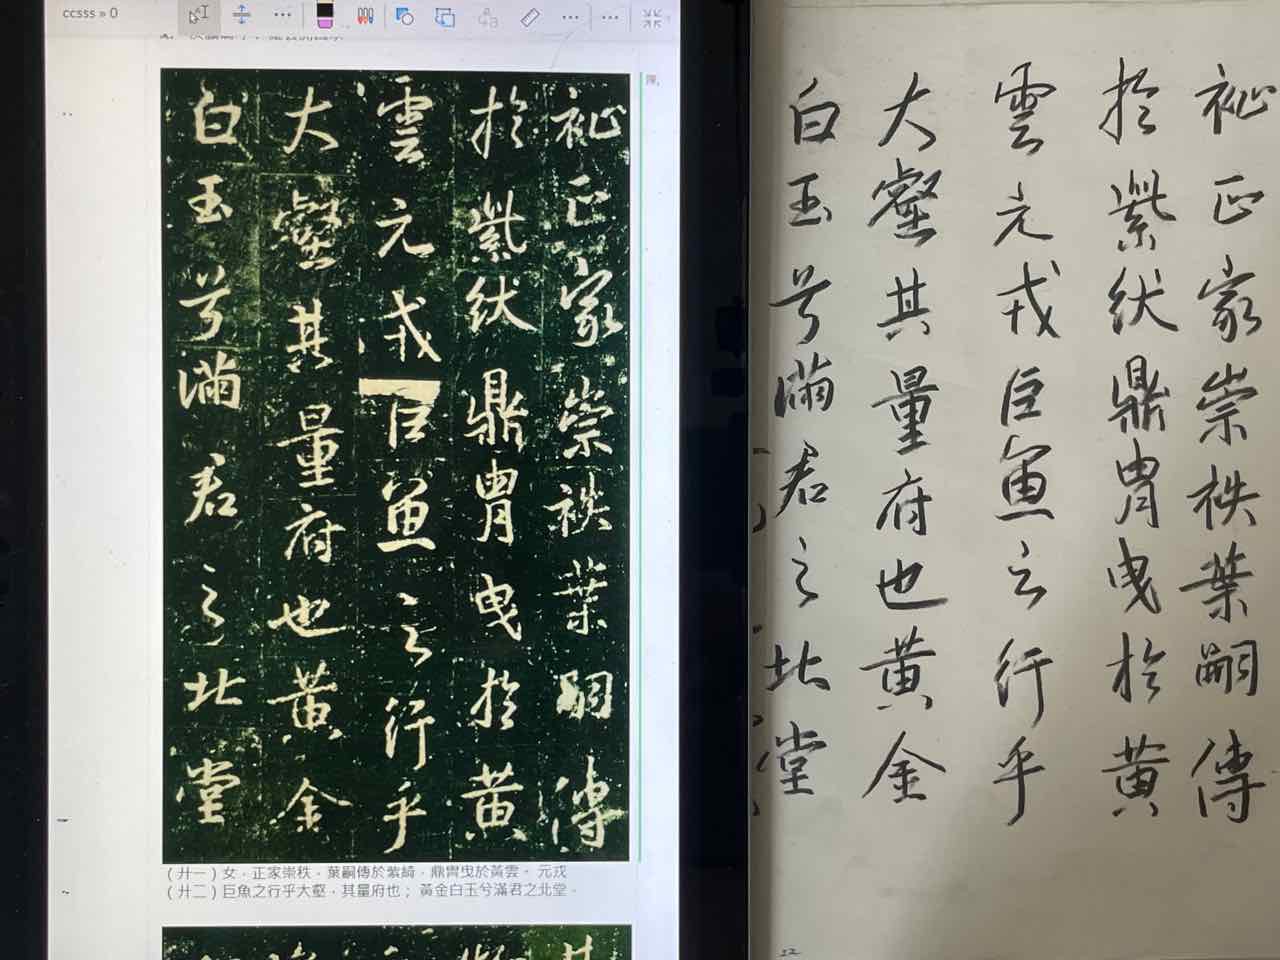 ccsss » 0
祉正家崇秩葉嗣傳
於紫紱鼎胄曳於黃
雲元戎巨魚之行乎
大壑其量府也黃金
白玉兮滿君之北堂
(廾一)女,正家崇秩。葉嗣傳於紫綺,鼎胄曳於黃雲。 元戎
(廾二)巨魚之行乎大壑,其量府也; 黃金白玉兮滿君之北堂。
祉正家崇秩葉嗣傳
於紫紱鼎胄曳於黃
雲元戎巨魚之行乎
大壑其量府也黃金
白玉兮滿君之北堂